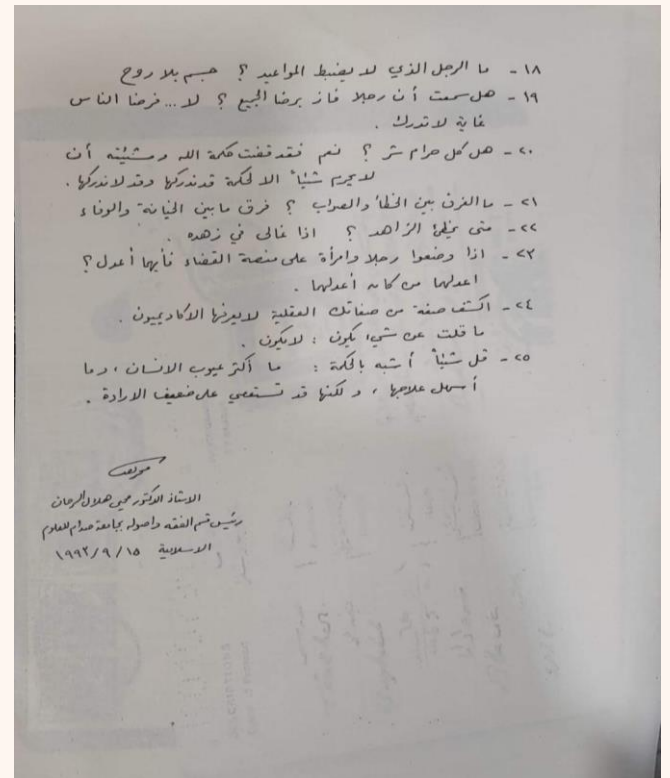 ١٨- ما الرجل الذي لا يضبط المواعيد ؟ جسم بلا روح
١٩- هل سمعت أن رجلا فاز برضا الجميع ؟ لا... فرضا الناس
غاية لاتدرك .
٢٠- هل كل حرام شر ؟ نعم فقد قضت حكمة الله ومشيئته أن
لايحرم شيئاً الا لحكمة قد ندركها وقد لاندركها .
٢١- ما الفرق بين الخطأ والصواب ؟ فرق ما بين الخيانة والوفاء
٢٢- متى يخطئ الزاهد ؟ اذا غالى في زهده .
٢٣- اذا وضعوا رجلا وامرأة على منصة القضاء فأيهما أعدل ؟
اعدلهما من كان أعدلهما .
٢٤- اكشف صفة من صفاتك العقلية لايعرفها الاكاديميون .
ما قلت عن شيء يكون : لايكون .
٢٥- قل شيئاً أشبه بالحكمة : ما أكثر عيوب الانسان ، وما
أسهل علاجها ، ولكنها قد تستعصي على ضعيف الارادة .
الاستاذ الدكتور محيي هلال السرحان
رئيس قسم الفقه واصوله بجامعة صدام للعلوم
الاسلامية ١٩٩٢/٩/١٥